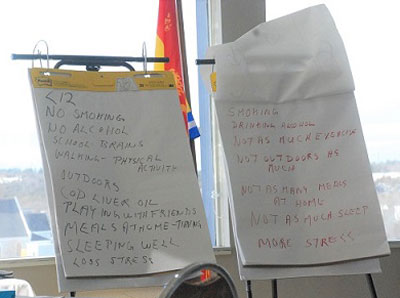 <12
NO SMOKING
NO ALCOHOL
SCHOOL BRAINS
WALKING - PHYSICAL
ACTIVITY
OUTDOORS
COD LIVER OIL
PLAYING WITH FRIENDS
MEALS AT HOME - TIMING
SLEEPING WELL
LESS STRESS
SMOKING
DRINKING ALCOHOL
NOT AS MUCH EXERCISE
NOT OUTDOORS AS
MUCH
NOT AS MANY MEALS
AT HOME
NOT AS MUCH SLEEP
MORE STRESS